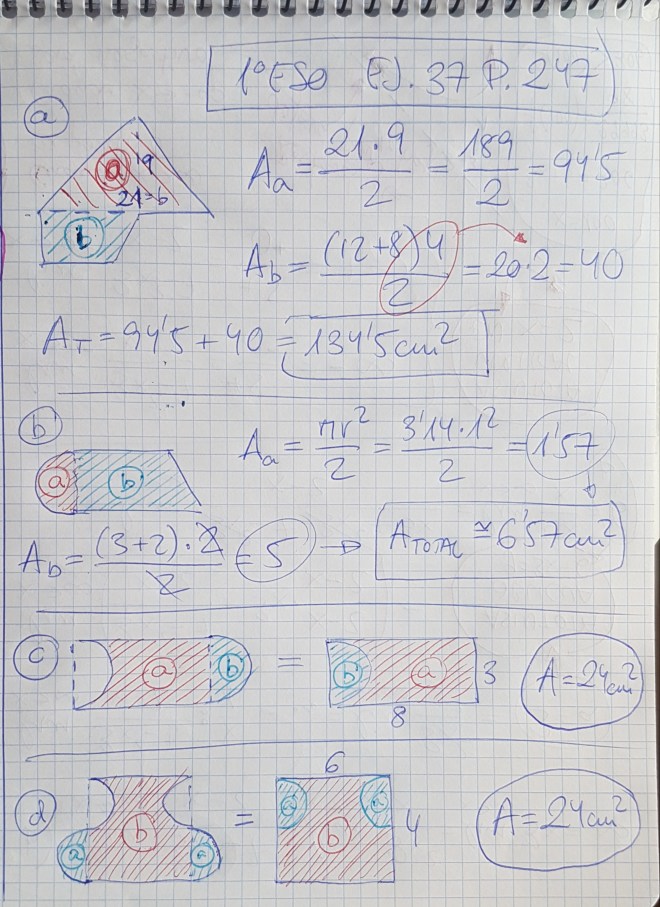 1º ESO EJ. 37 P. 247
a
a 9
21=b
b
Aa = 21·9/2 = 189/2 = 94'5
Ab = (12+8)4/2 = 20·2 = 40
AT = 94'5 + 40 = 134'5 cm²
b
a b
Aa = πr²/2 = 3'14·1²/2 = 1'57
Ab = (3+2)·2/2 = 5 → ATOTAL ≅ 6'57 cm²
c
a b = b a 3
8
A = 24 cm²
d
b
a a
=
6
a a
b 4
A = 24 cm²